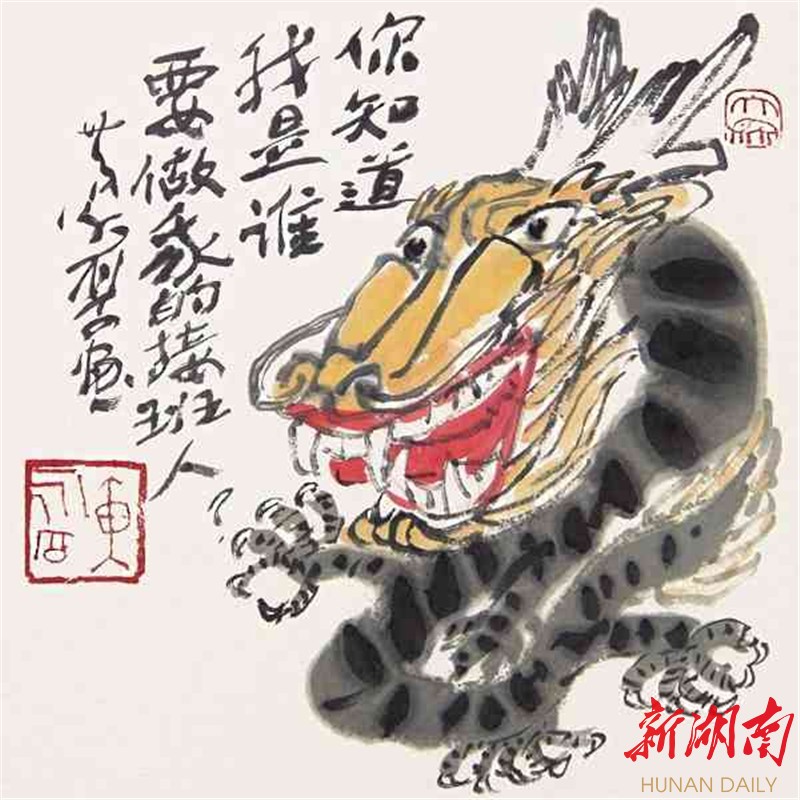 你知道
我是谁
要做我的接班人？
黄永厚画
新湖南
HUNAN DAILY